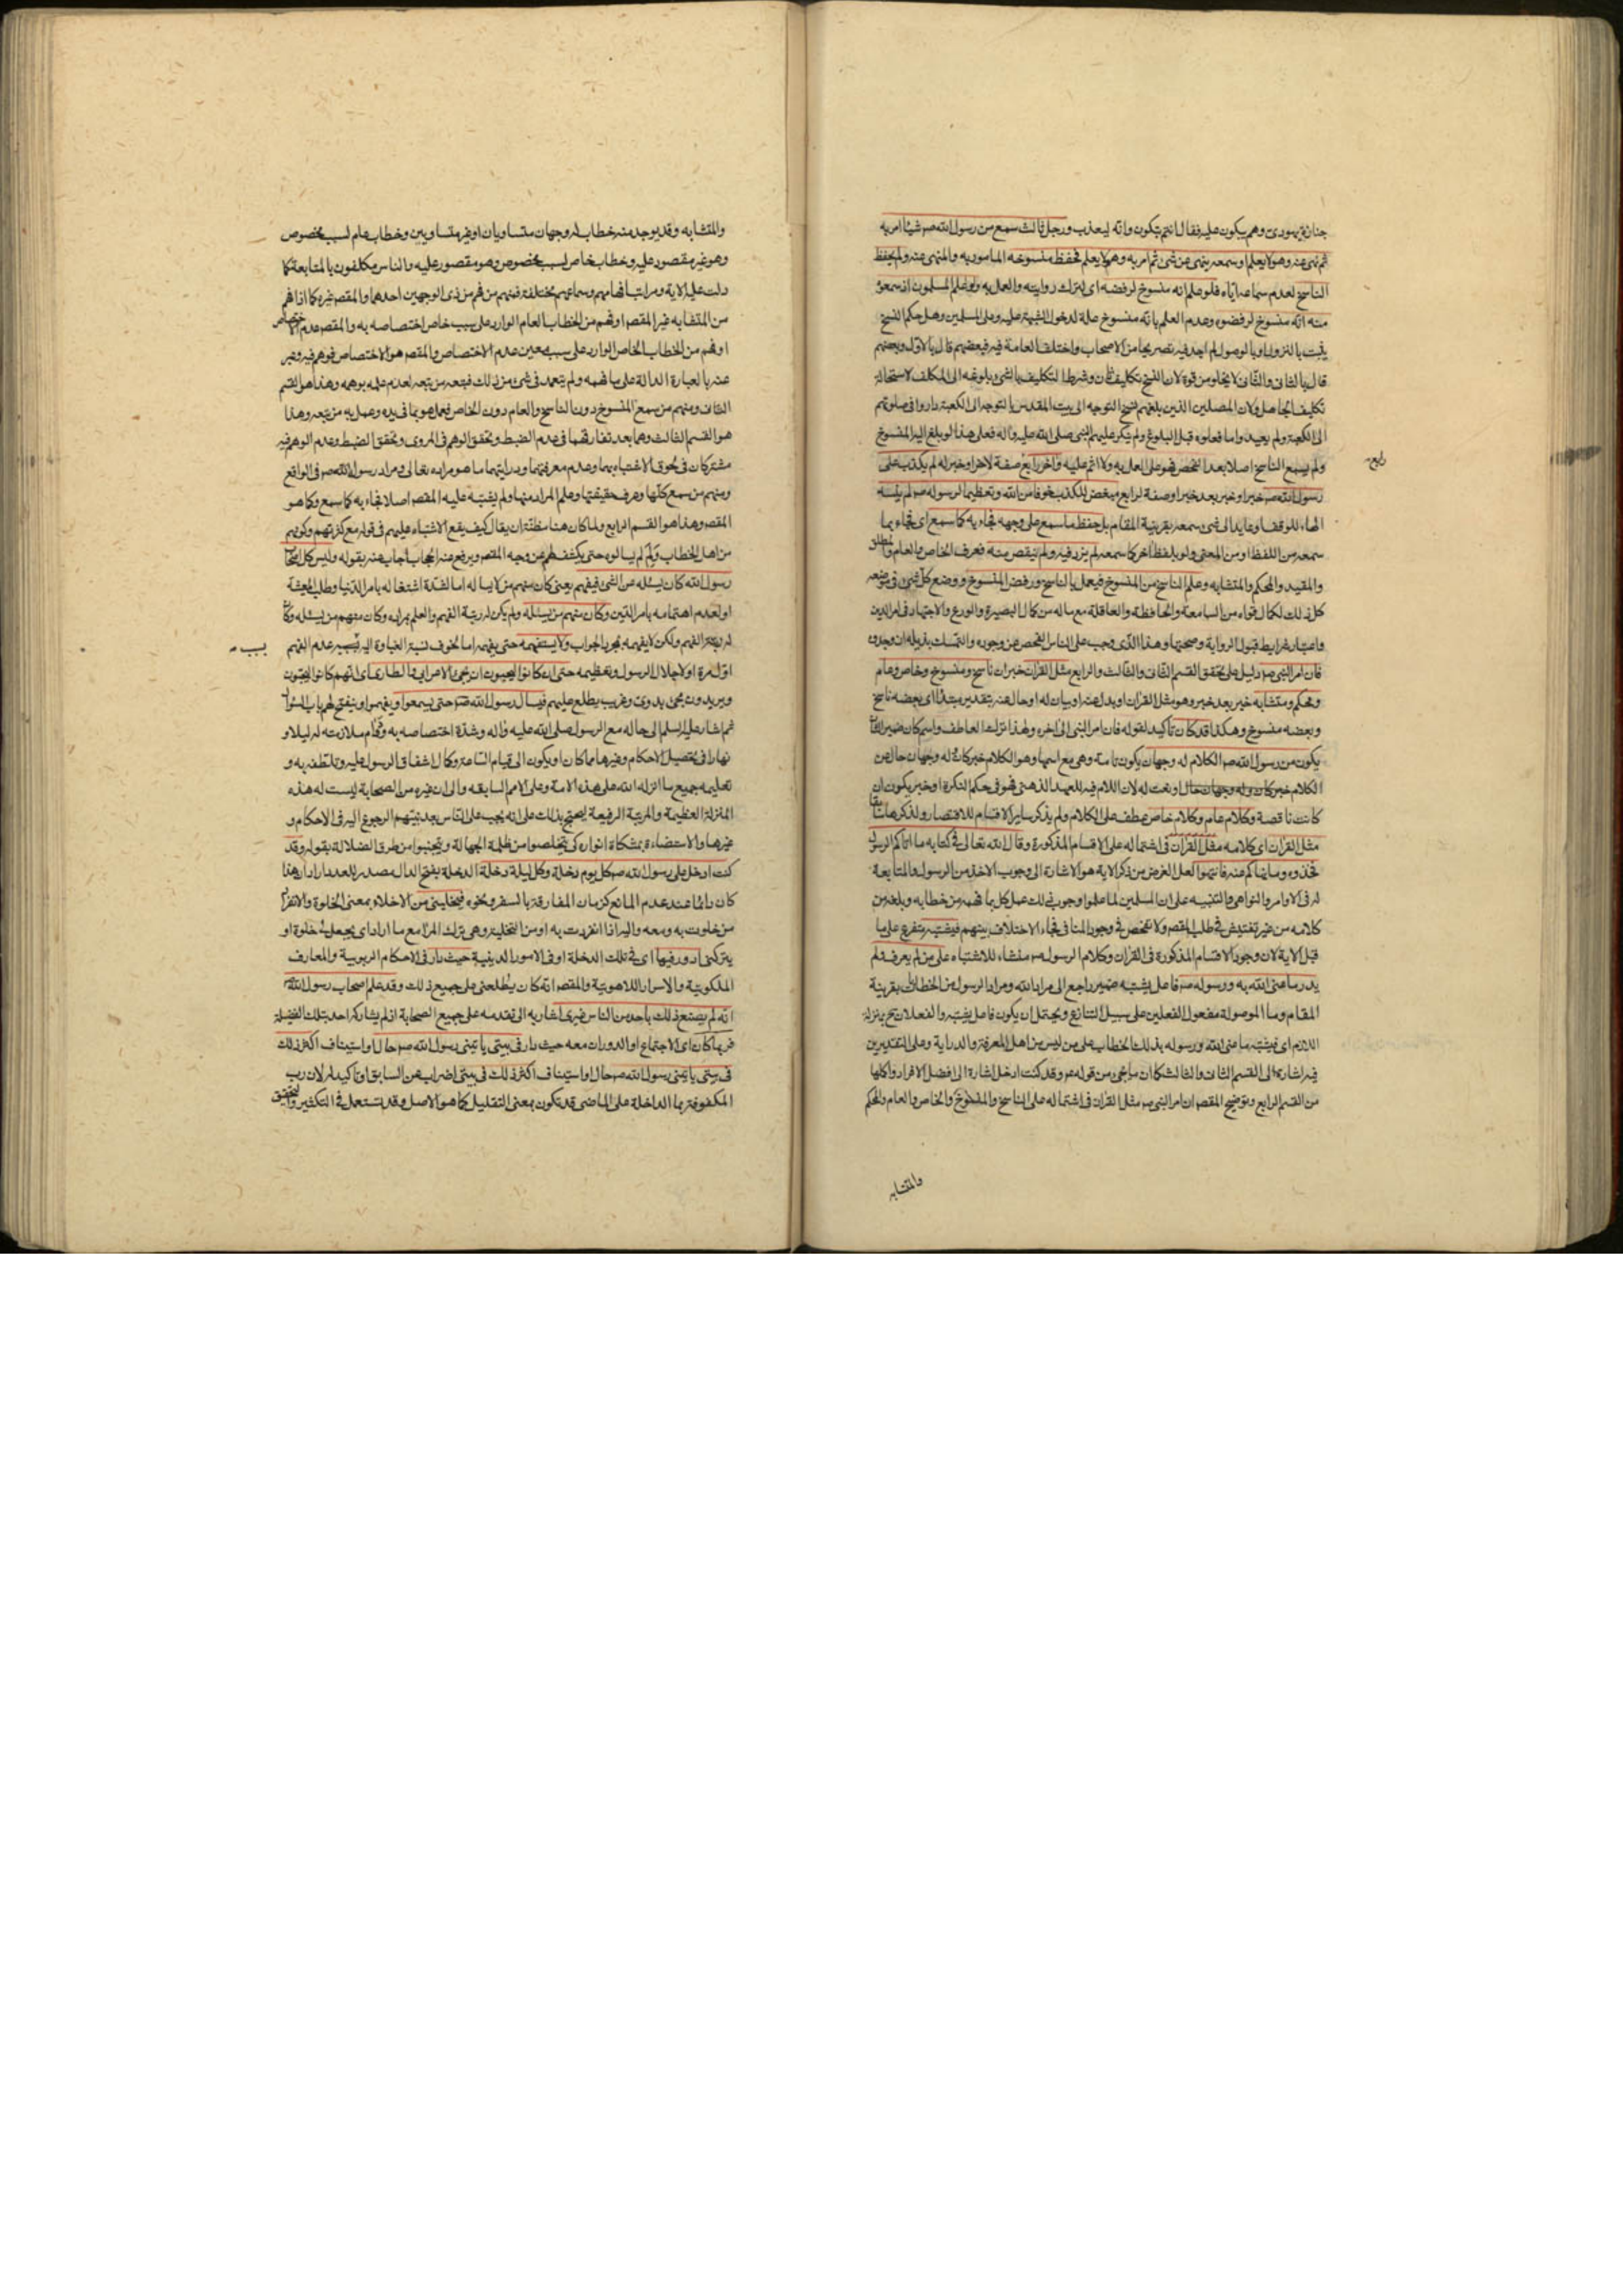 جنازة يهودى وهم يبكون عليه فقال انتم تبكون وانه ليعذب ورجل ثالث سمع من رسول الله صه شيئا امر به
ثم نهى عنه وهو لا يعلم او سمعه ينهى عن شئ ثم امر به وهو لا يعلم فحفظ منسوخه المامور به والمنهى عنه ولم يحفظ
الناسخ لعدم سماعه اياه فلو علم انه منسوخ لرفضه اى لترك روايته والعمل به ولو علم المسلمون اذ سمعوه
منه انه منسوخ لرفضوه وعدم العلم بانه منسوخ علة لدخول الشبهة عليه وعلى المسلمين وهل حكم النسخ
يثبت بالنزول او بالوصول لم اجد فيه تصريحا من الاصحاب واختلف العامة فيه فبعضهم قال بالاول وبعضهم
قال بالثانى والثانى لا يخلو من قوة لان النسخ تكليف ثان وشرط التكليف بالشئ بلوغه الى المكلف لاستحالة
تكليف الجاهل ولان المصلين الذين بلغهم نسخ التوجه الى بيت المقدس بالتوجه الى الكعبة داروا فى صلوتهم
الى الكعبة ولم يعيدوا ما فعلوه قبل البلوغ ولم ينكر عليهم النبى صلى الله عليه واله فعلى هذا لو بلغ اليه المنسوخ
ولم يسمع الناسخ اصلا بعد الفحص فهو على العمل به ولا اثم عليه واخر رابع صفة لاخر او خبر له لم يكذب على
رسول الله صه خبر او خبر بعد خبر او صفة لرابع مبغض للكذب خوفا من الله وتعظيما لرسوله صه لم ينسه
الهاء للوقف او عايد الى شئ سمعه بقرينة المقام بل حفظ ما سمع على وجهه فجاء به كما سمع اى فجاء بما
سمعه من اللفظ او من المعنى ولو بلفظ اخر كما سمعه لم يزد فيه ولم ينقص منه فعرف الخاص والعام والمطلق
والمقيد والمحكم والمتشابه وعلم الناسخ من المنسوخ فيعمل بالناسخ ورفض المنسوخ ووضع كل شئ فى موضعه
كل ذلك لكمال قواه من السامعة والحافظة والعاقلة مع ماله من كمال البصيرة والورع والاجتهاد فى امر الدين
واعتبار شرايط قبول الرواية وصحتها وهذا الذى وجب على الناس الفحص عن وجوده والتمسك بذيله ان وجدوه
فان امر النبى صه دليل على تحقق القسم الثانى والثالث والرابع مثل القران خبر ان ناسخ ومنسوخ وخاص وعام
ومحكم ومتشابه خبر بعد خبر وهو مثل القران او بدل عنه او بيان له او حال عنه بتقدير مبتدأ اى بعضه ناسخ
وبعضه منسوخ وهكذا قد كان تاكيد لقوله فان امر النبى الى اخره ولهذا ترك العاطف واسم كان ضمير الشان
يكون من رسول الله صه الكلام له وجهان يكون تامة وهى مع اسمها وهو الكلام خبر كان له وجهان حال عن
الكلام خبر كان وله وجهان حال او نعت له لان اللام فيه للعهد الذهنى فهو فى حكم النكرة او خبر يكون ان
كانت ناقصة وكلام عام وكلام خاص عطف على الكلام ولم يذكر ساير الاقسام للاقتصار ولذكرها سابقا
مثل القران اى كلامه مثل القران فى اشتماله على الاقسام المذكورة وقال الله تعالى فى كتابه ما اتاكم الرسول
فخذوه وما نهاكم عنه فانتهوا لعل الغرض من ذكر الاية هو الاشارة الى وجوب الاخذ من الرسول والمتابعة
له فى الاوامر والنواهى والتنبيه على ان المسلمين لما علموا وجوب ذلك عمل كل بما فهمه من خطابه وبلغه من
كلامه من غير تفتيش فى طلب المقصه ولا تفحص فى وجود المنافى فجاء الاختلاف بينهم فيشتبه متفرع على ما
قبل الاية لان وجود الاقسام المذكورة فى القران وكلام الرسول صه منشاء للاشتباه على من لم يعرف ولم
يدر ما عنى الله به ورسوله صه فاعل يشتبه ضمير راجع الى مراد الله ومراد الرسول من الخطاب بقرينة
المقام وما الموصولة مفعول الفعلين على سبيل التنازع ويحتمل ان يكون فاعل يشتبه والفعلان ح بمنزلة
اللازم اى فيشتبه ما عنى الله ورسوله بذلك الخطاب على من ليس من اهل المعرفة والدراية وعلى التقديرين
فيه اشارة الى القسم الثانى والثالث كما ان ما يجئ من قوله عه وقد كنت ادخل اشارة الى افضل الافراد واكملها
من القسم الرابع وتوضيح المقصه ان امر النبى صه مثل القران فى اشتماله على الناسخ والمنسوخ والخاص والعام والمحكم
والمتشابه
والمتشابه وقد يوجد منه خطاب له وجهان متساويان او غير متساويين وخطاب عام لسبب مخصوص
وهو غير مقصور عليه وخطاب خاص لسبب مخصوص وهو مقصور عليه والناس مكلفون بالمتابعة كما
دلت عليه الاية ومراتب افهامهم وسماعهم مختلفة فمنهم من فهم من ذى الوجهين احدهما والمقصه غيره كما اذا فهم
من المتشابه غير المقصه او فهم من الخطاب العام الوارد على سبب خاص اختصاصه به والمقصه عدم الاختصاص
او فهم من الخطاب الخاص الوارد على سبب معين عدم الاختصاص والمقصه هو الاختصاص فوهم فيه وعبر
عنه بالعبارة الدالة على ما فهمه ولم يتعمد فى شئ من ذلك فيتبعه من يتبعه لعدم علمه بوهمه وهذا هو القسم
الثانى ومنهم من سمع المنسوخ دون الناسخ والعام دون الخاص فعمل هو بما فى يده وعمل به من يتبعه وهذا
هو القسم الثالث وهما بعد تفارقهما فى عدم الضبط وتحقق الوهم فى المروى وتحقق الضبط وعدم الوهم فيه
مشتركان فى لحوق الاشتباه بهما وعدم معرفتهما ودرايتهما ما هو مراده تعالى ومراد رسول الله صه فى الواقع
ومنهم من سمع كلها وعرف حقيقتها وعلم المراد منها ولم يشتبه عليه المقصه اصلا فجاء به كما سمع وكما هو
المقصه وهذا هو القسم الرابع ولما كان هنا مظنة ان يقال كيف يقع الاشتباه عليهم فى قوله مع كثرتهم وكونهم
من اهل الخطاب ولم لم يسالوه حتى يكشف لهم عن وجه المقصه ويرفع عنه الحجاب اجاب عنه بقوله وليس كل اصحاب
رسول الله كان يسئله عن الشئ فيفهم يعنى كان منهم من لا يساله اما لشدة اشتغاله بامر الدنيا وطلب المعيشة
او لعدم اهتمامه بامر الدين وكان منهم من يسئله ولم يكن له رتبة الفهم والعلم بمراده وكان منهم من يسئله وكان
له رتبة الفهم ولكن لا يفهمه بمجرد الجواب ولا يستفهمه حتى يفهمه اما لخوف نسبة الغباوة اليه بسبب عدم الفهم
اول مرة او لاجلال الرسول وتعظيمه حتى ان كانوا ليحبون ان يجئ الاعرابى والطارى اى انهم كانوا يحبون
ويريدون مجئ بدوى وغريب يطلع عليهم فيسال رسول الله صه حتى يسمعوا ويفهموا او ينفتح لهم باب السؤال
ثم اشار عليه السلم الى حاله مع الرسول صلى الله عليه واله وشدة اختصاصه به ودوام ملازمته له ليلا و
نهارا فى تحصيل الاحكام وغيرها مما كان او يكون الى قيام الساعة وكمال اشفاق الرسول عليه وتلطفه به و
تعليمه جميع ما انزله الله على هذه الامة وعلى الامم السابقه والى ان غيره من الصحابة ليست له هذه
المنزلة العظيمة والمرتبة الرفيعة ليحتج بذلك على انه يجب على الناس بعد نبيهم الرجوع اليه فى الاحكام و
غيرها والاستضاءة بمشكاة انواره كى يتخلصوا من ظلمة الجهالة ويجتنبوا من طرق الضلالة بقوله وقد
كنت ادخل على رسول الله صه كل يوم دخلة وكل ليلة دخلة الدخلة بفتح الدال مصدر للعدد اراد ان هذا
كان دائما عند عدم المانع كزمان المفارقة بالسفر ونحوه فيخلينى من الاخلاء بمعنى الخلوة والانفراد
من خلوت به ومعه واليه اذا انفردت به او من التخلية وهى ترك المرء مع ما اراد اى يجعل لى خلوة او
يتركنى ادور فيها اى فى تلك الدخلة او فى الامور الدينية حيث دار فى الاحكام الربوبية والمعارف
الملكوتية والاسرار اللاهوتية والمقصه انه كان يطلعنى على جميع ذلك وقد علم اصحاب رسول الله صه
انه لم يصنع ذلك باحد من الناس غيرى اشار به الى تقدمه على جميع الصحابة اذ لم يشاركه احد بتلك الفضيلة
فربما كان اى الاجتماع او الدوران معه حيث دار فى بيتى ياتينى رسول الله صه حال او استيناف اكثر ذلك
فى بيتى ياتينى رسول الله صه حال او استيناف اكثر ذلك فى بيتى اضراب عن السابق او تاكيد له لان رب
المكفوفة بما الداخلة على الماضى قد تكون بمعنى التقليل كما هو الاصل وقد تستعمل فى التكثير والتحقيق